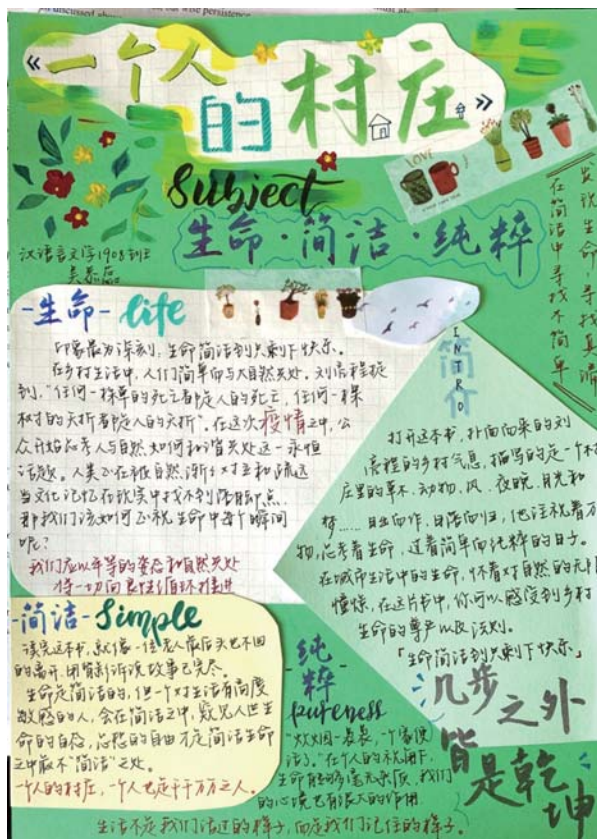 《一个人
的村庄》
Subject
生命·简洁·纯粹
汉语言文学1908班
LOVE
发现生命，寻找真谛
在简洁中寻找不简单
-生命- life
印象最为深刻，生命简洁到只剩下快乐。
在乡村生活中，人们简单而与大自然共处。刘亮程提
到，“任何一株草的死亡都是人的死亡，任何一棵
树的夭折都是人的夭折”。在这次疫情之中，公
众开始思考人与自然如何和谐共处这一永恒
话题。人类正在被自然渐渐对立和疏远
当文化记忆在现实中找不到落脚点
那我们该如何正视生命中每个瞬间
呢？
我们应以平等的姿态和自然共处
将一切向良性循环推进
INTRO
简介
打开这本书，扑面而来的刘
亮程的乡村气息，描写的是一个村
庄里的草木、动物、风、夜晚、月光和
梦……日出而作，日落而归，他注视着万
物，思考着生命，过着简单而纯粹的日子。
在城市生活中的生命，怀着对自然的无限
憧憬，在这片书中，你可以感受到乡村
生命的尊严以及法则。
「生命简洁到只剩下快乐」
-简洁- Simple
读完这本书，就像一位老人最后头也不回
的离开，用背影诉说故事已完尽
生命是简洁的，但一个对生活有高度
敏感的人，会在简洁之中，窥见人世生
命的百态，思想的自由才是简洁生命
之中最不“简洁”之处。
一个人的村庄，一个人也是千千万万之人。
纯粹
pureness
“炊烟一袅袅，一个家便
活了。”在个人的视角下
生命能够毫无杂质，我们
的心境也有很大的作用
几步之外
皆是乾坤
生活不是我们活过的样子，而是我们记住的样子